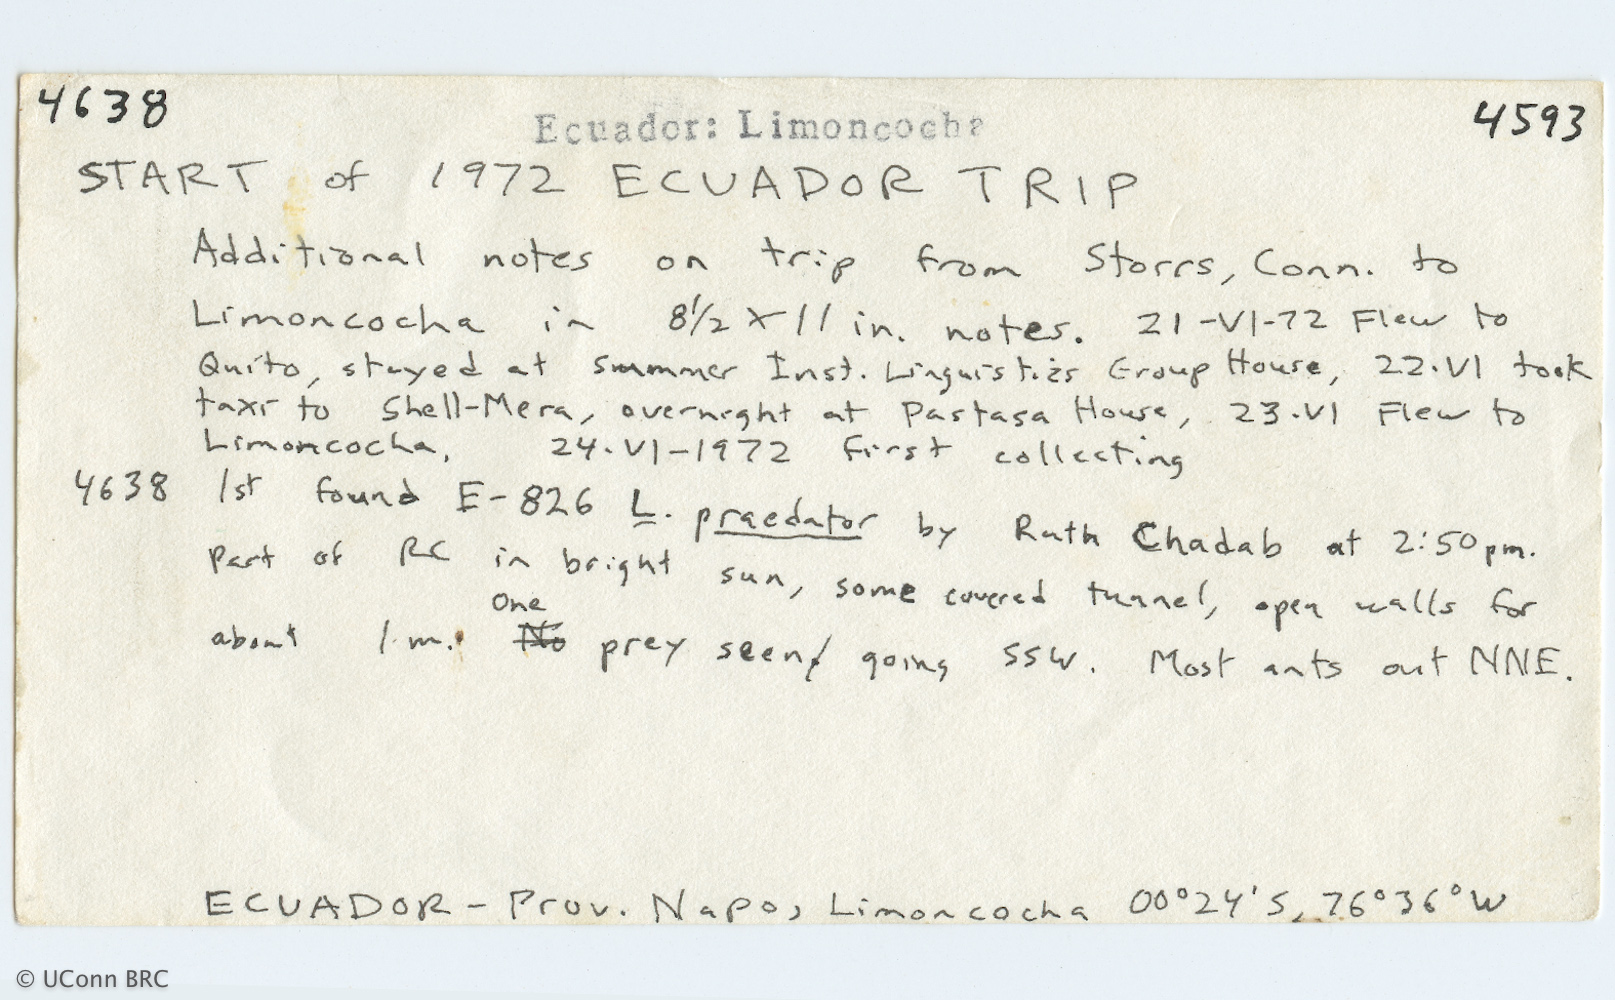 4638
Ecuador: Limoncocha
4593
START of 1972 ECUADOR TRIP
Additional notes on trip from Storrs, Conn. to
Limoncocha in 8 1/2 x 11 in. notes. 21-VI-72 Flew to
Quito, stayed at Summer Inst. Linguistics Group House, 22.VI took
taxi to Shell-Mera, overnight at Pastasa House, 23.VI Flew to
Limoncocha. 24.VI-1972 First collecting
4638 1st found E-826 L. praedator by Ruth Chadab at 2:50 pm.
Part of RC in bright sun, some covered tunnel, open walls for
One
about 1 m. No prey seen, going SSW. Most ants out NNE.
ECUADOR - Prov. Napo, Limoncocha 00°24'S, 76°36°W
© UConn BRC